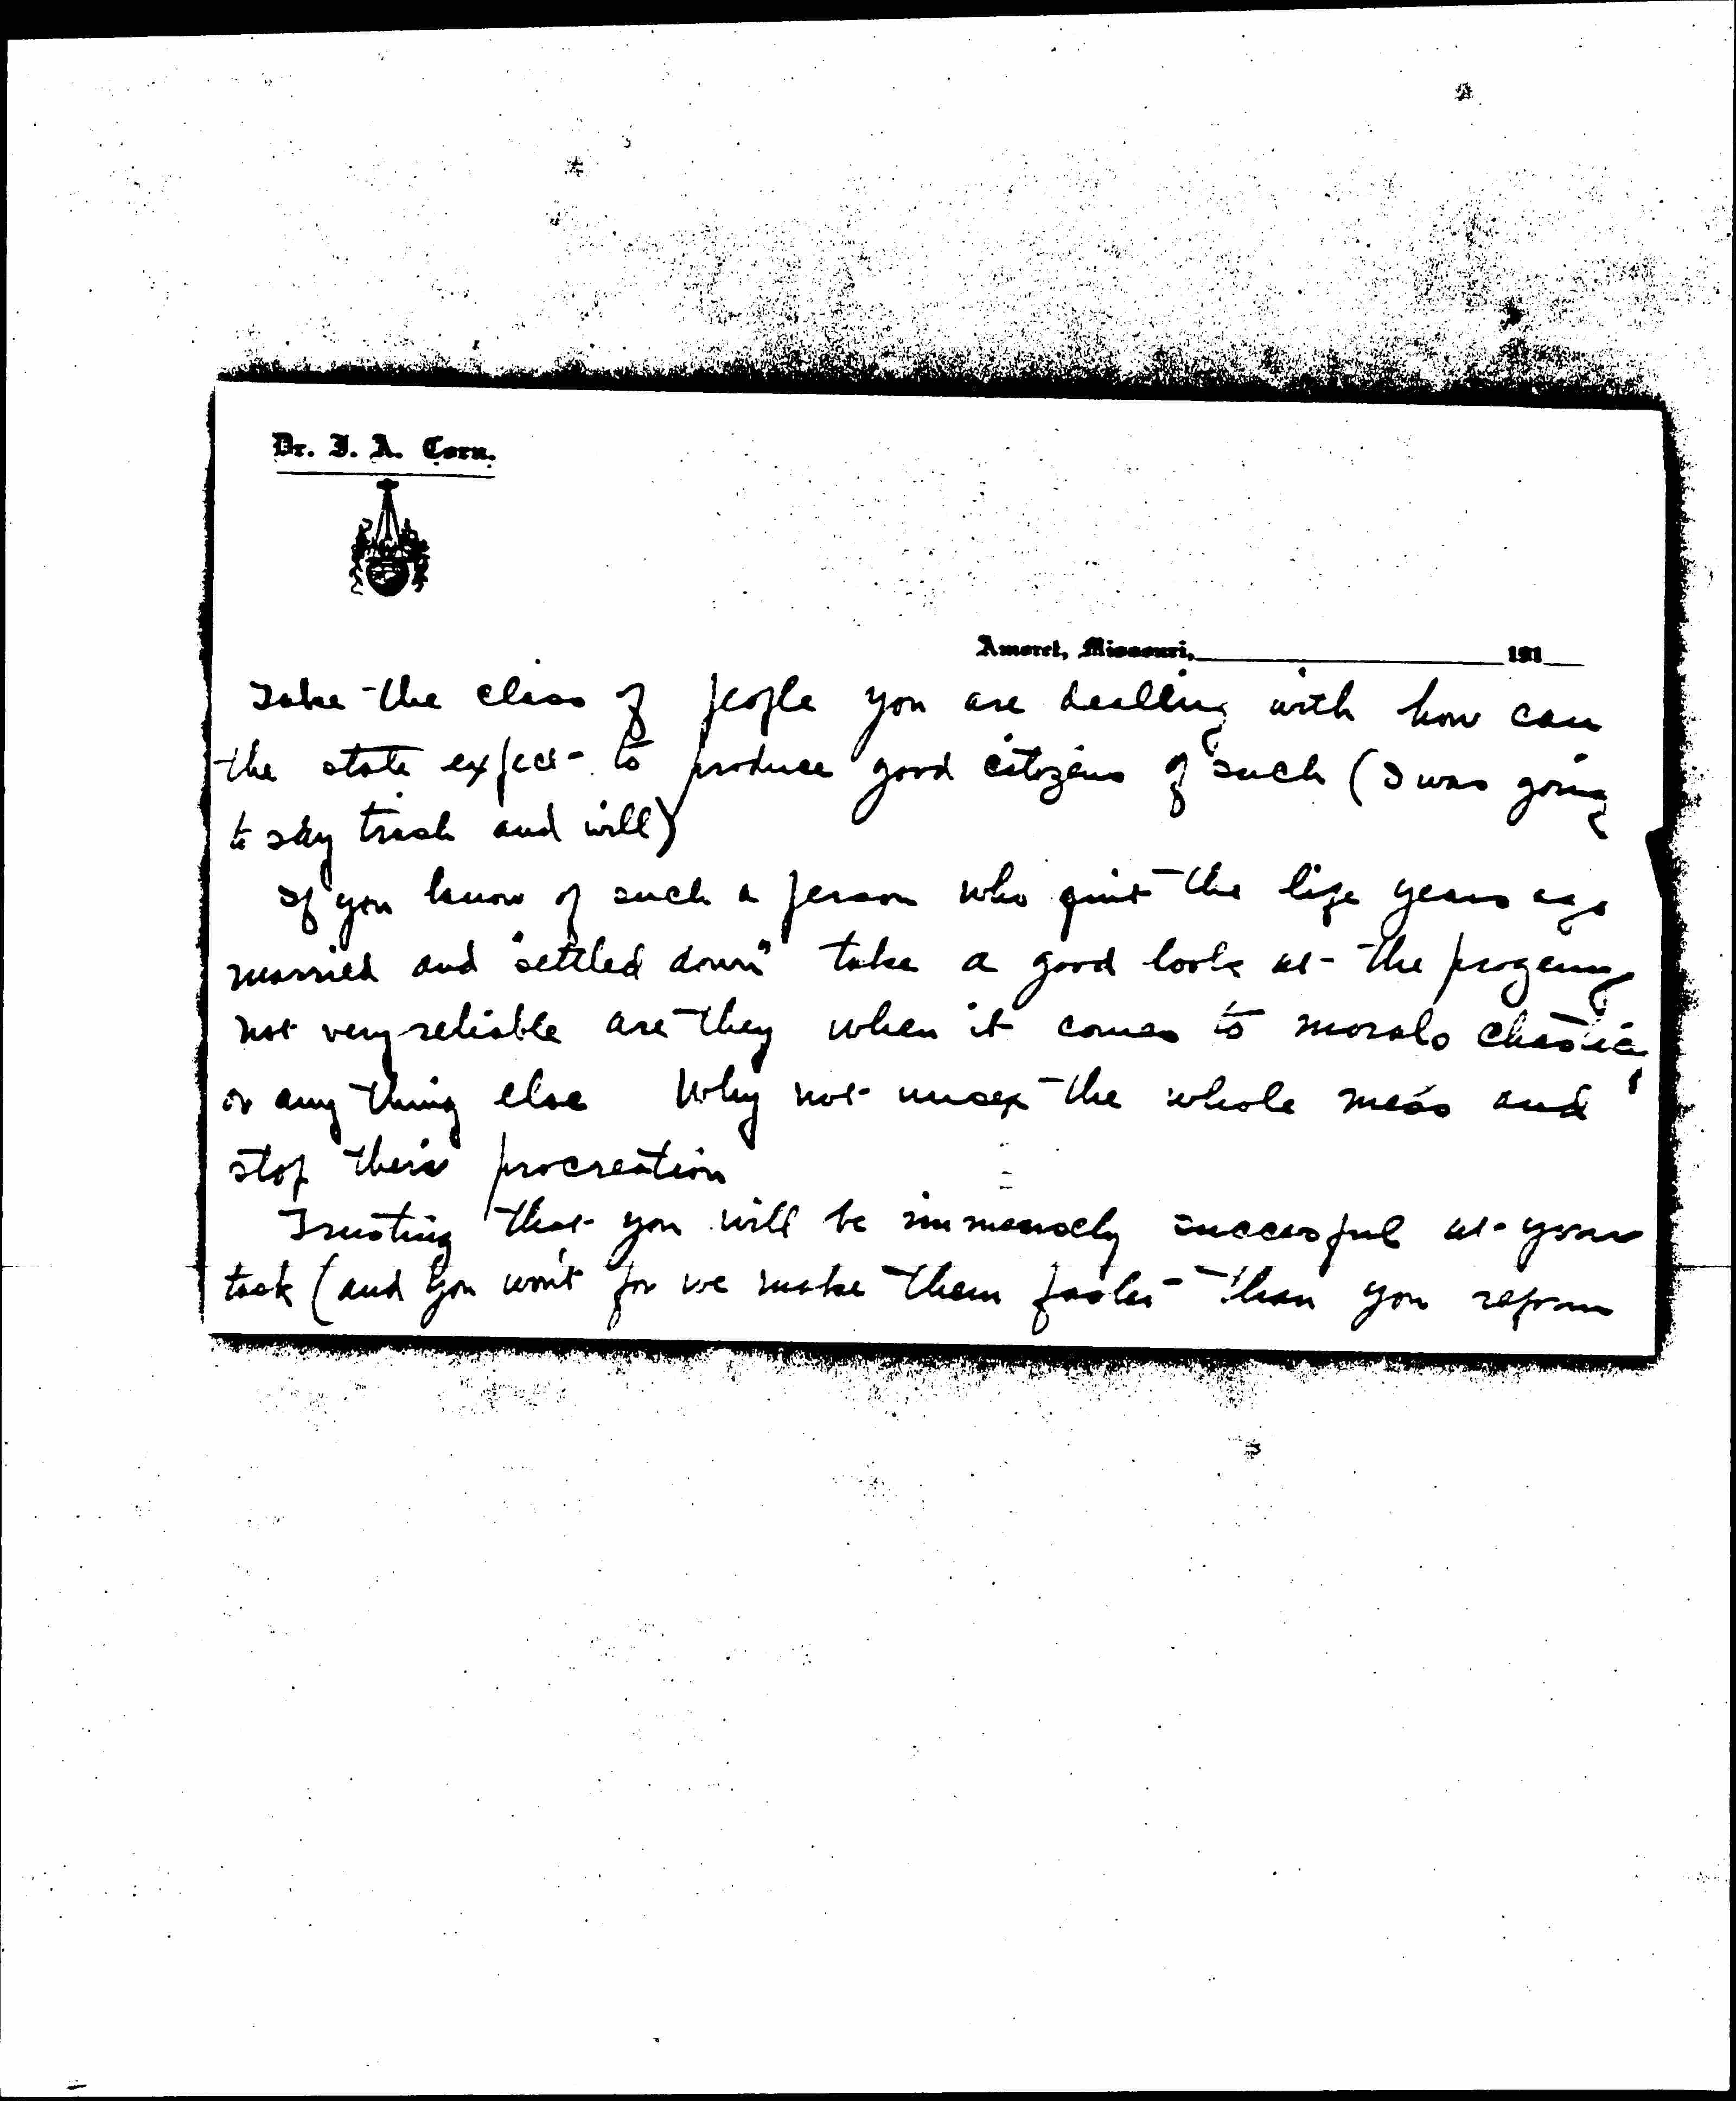 Dr. J. A. Corn.
Amoret, Missouri, 191
Take the class of people you are dealing with how can
the state expect to produce good citizens of such (I was going
to say trash and will)
If you know of such a person who quit the life years ago
married and "settled down" take a good look at the progeny
not very reliable are they when it comes to morals chastity
or any thing else Why not unsex the whole mess and
stop their procreation
Trusting that you will be immensely successful at your
task (and you won't for we make them faster than you reform